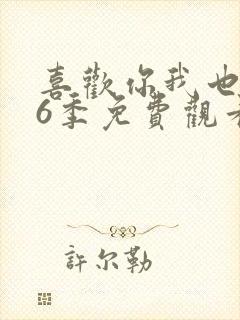 喜歡你我也
6季免費觀看
許尔勒